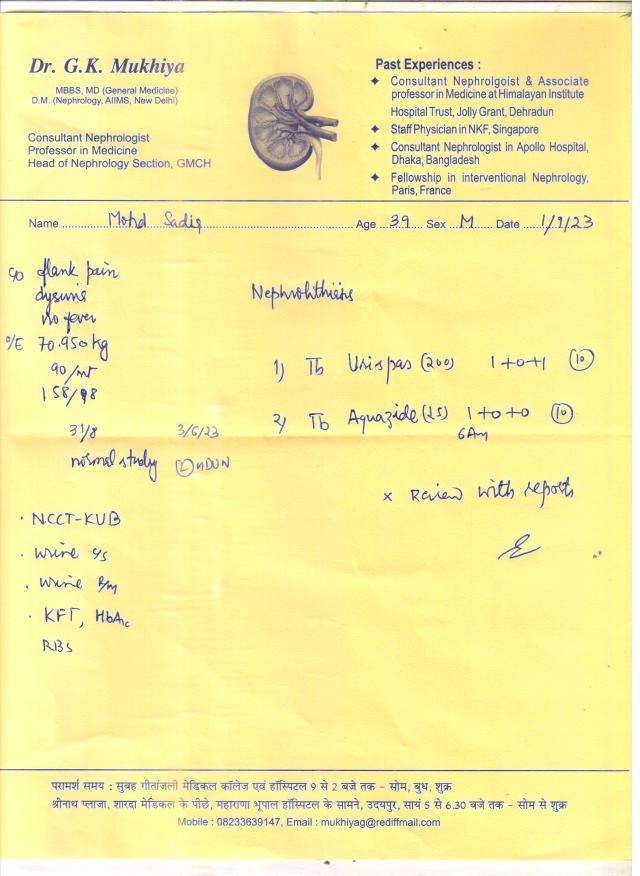 Dr. G.K. Mukhiya
MBBS, MD (General Medicine)
D.M. (Nephrology, AIIMS, New Delhi)
Consultant Nephrologist
Professor in Medicine
Head of Nephrology Section, GMCH
Past Experiences :
✦ Consultant Nephrolgoist & Associate
professor in Medicine at Himalayan Institute
Hospital Trust, Jolly Grant, Dehradun
✦ Staff Physician in NKF, Singapore
✦ Consultant Nephrologist in Apollo Hospital,
Dhaka, Bangladesh
✦ Fellowship in interventional Nephrology,
Paris, France
Name Mohd Sadiq Age 39 Sex M Date 1/9/23
c/o flank pain
dysuria
no fever
O/E 70.950 kg
90/mt
158/98
31/8 3/6/23
normal study
· NCCT-KUB
· urine c/s
· urine R/m
· KFT, HbA1c
RBS
Nephrolithiasis
1) Tb Urispas (200) 1+0+1 (10)
2) Tb Aquazide (25) 1+0+0 (10)
6Am
x Review with reports
परामर्श समय : सुबह गीतांजली मेडिकल कॉलेज एवं हॉस्पिटल 9 से 2 बजे तक - सोम, बुध, शुक्र
श्रीनाथ प्लाजा, शारदा मेडिकल के पीछे, महाराणा भूपाल हॉस्पिटल के सामने, उदयपुर, सायं 5 से 6.30 बजे तक - सोम से शुक्र
Mobile : 08233639147, Email : mukhiyag@rediffmail.com